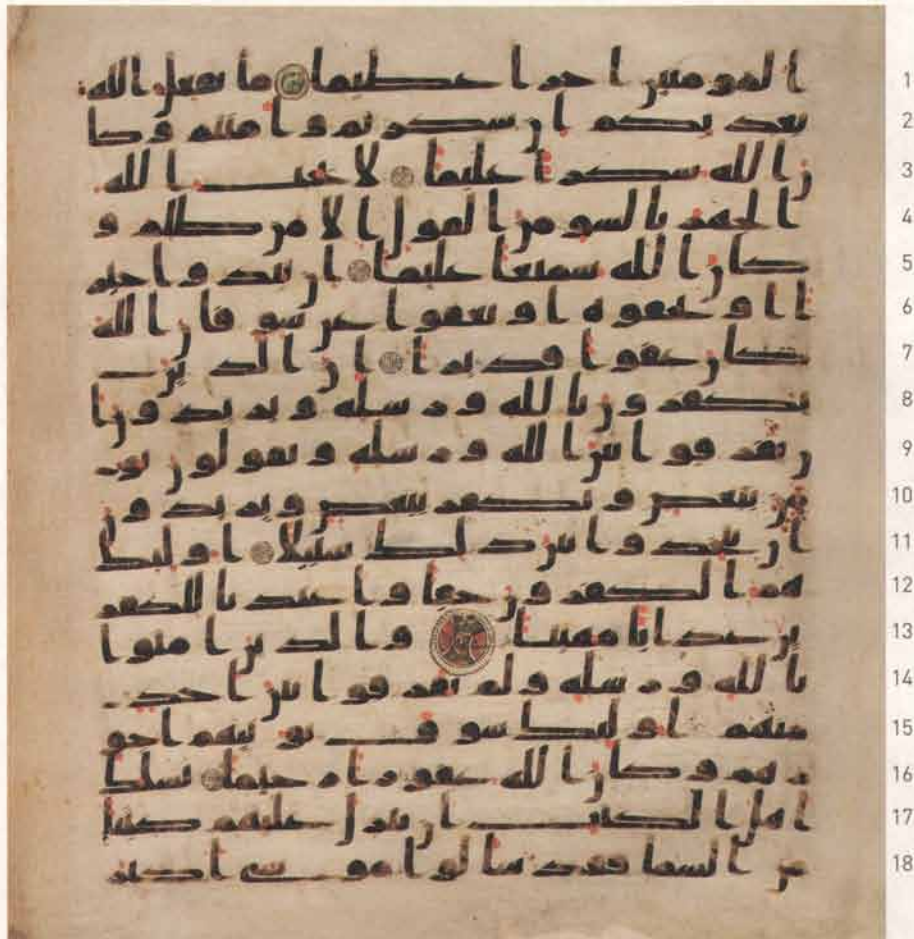 المومنين اجرا عظيما ما يفعل الله 1
بعذبكم ان شكرتم وامنتم وكا 2
ن الله شكرا عليما لا يحب الله 3
الجهر بالسو من القول الا من ظلم و 4
كان الله سميعا عليما ان تبدوا خير 5
ا او تخفوه او تعفوا عن سو فان الله 6
كان عفوا قديرا ان الذين 7
يكفرون بالله ورسله ويريدون ا 8
ن يفرقوا بين الله ورسله ويقولون نو 9
من ببعض ونكفر ببعض ويريدون 10
ان يتخذوا بين ذلك سبيلا اوليك 11
هم الكفرون حقا واعتدنا للكفر 12
ين عذابا مهينا والذين امنوا 13
بالله ورسله ولم يفرقوا بين احد 14
منهم اوليك سوف نوتيهم اجو 15
رهم وكان الله غفورا رحيما يسلك 16
اهل الكتب ان تنزل عليهم كتبا 17
من السما فقد سالوا موسى اكبر 18